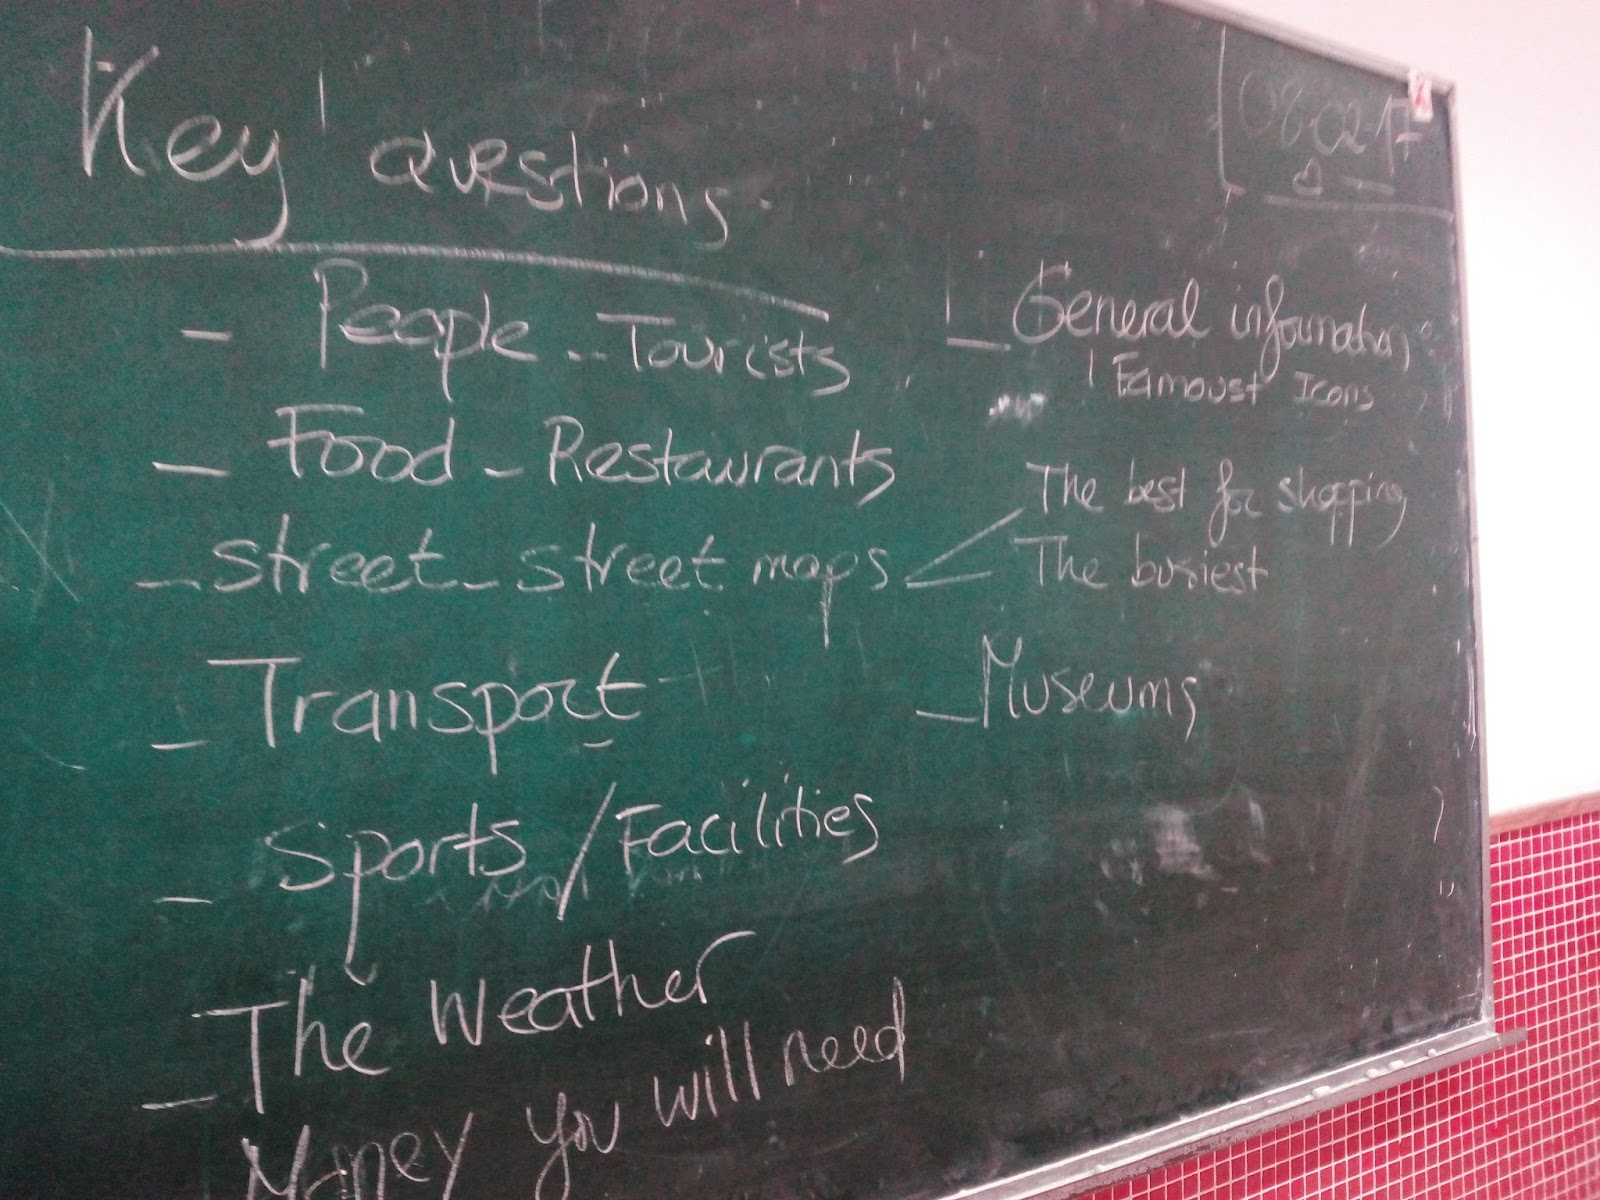 Key questions.
- People - Tourists
- Food - Restaurants
- street - street maps
The best for shopping
The busiest
- Transport
- Sports / Facilities
- The Weather
Money you will need
- General information,
Famoust Icons
- Museums